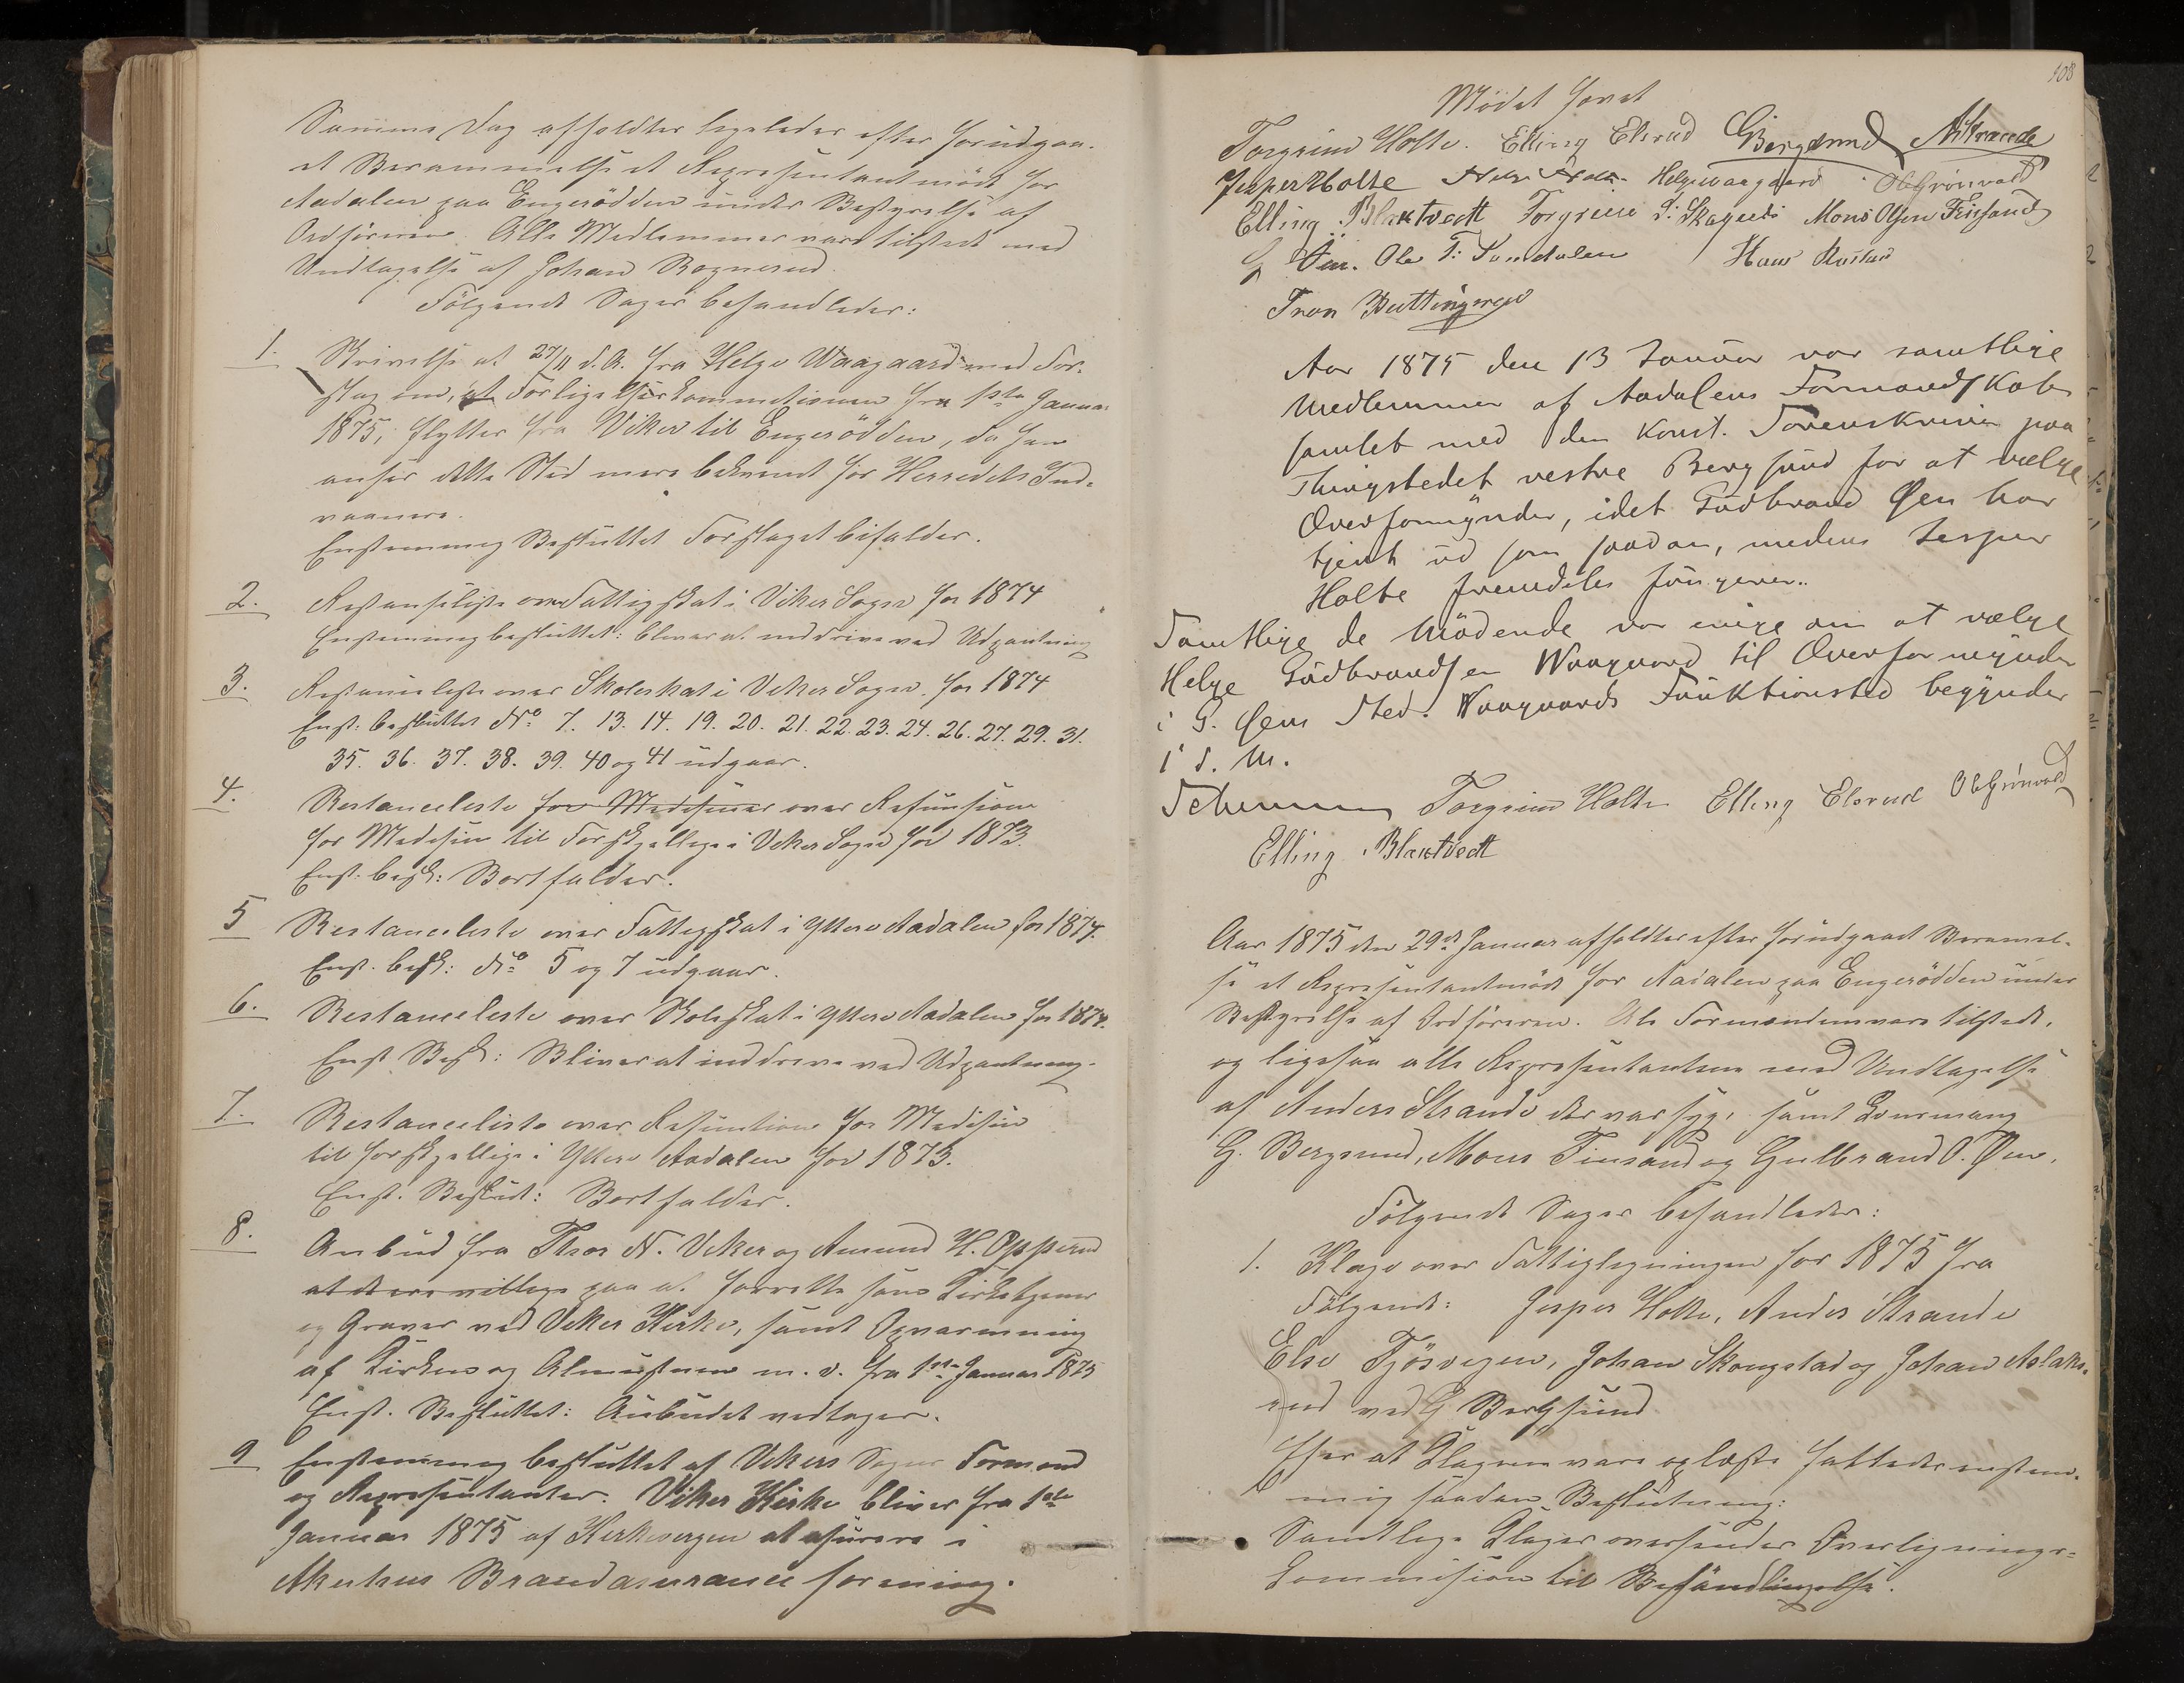 Samme Dag afholdtes ligeledes efter forudgaa-
et Berammelse et Repræsentantmöde for
Aadalen paa Engerödden under Bestyrelse af
Ordföreren. Alle Medlemmer vare tilstede med
Undtagelse af Johan Rognerud.
Fölgende Sager behandledes:
1. Skrivelse af 27/11 d. A. fra Helge Waagaard med For-
slag om, at Forligelseskommisionen fra 1ste Januar
1875, flyttes fra Viker til Engerödden, da han
anser dette Sted mere bekvemt for Herredets Ind-
vaanere.
Enstemmig Besluttet Forslaget bifaldes.
2. Restanseliste over Fattigskat i Viker Sogn for 1874
Enstemmig besluttet: bliver at inddrive ved Udpantning
3. Restanceliste over Skoleskat i Viker Sogn for 1874
Enst. besluttet No 7. 13. 14. 19. 20. 21. 22. 23. 24. 26. 27. 29. 31.
35. 36. 37. 38. 39. 40 og 41 udgaar.
4. Restanceliste for Medesiner over Refunsion
for Medesin til Forskjellige i Viker Sogn for 1873.
Enst. besl: Bortfalder.
5 Restanceliste over Fattigskat i Yttere Aadalen for 1874.
Enst. besl: No 5 og 7 udgaar.
6. Restanceliste over Skoleskat i Yttere Aadalen for 1874.
Enst Besl: Bliver at inddrive ved Udpantning.
7. Restanceliste over Refuntion for Medisin
til forskjellige i Yttere Aadalen for 1873.
Enst. Beslut: Bortfalder.
8. Anbud fra Thor N. Viker og Amund H. Opperud
at de ere villige paa at forrette som Kirketjener
og Graver ved Viker Kirke, samt Opvarmning
af Kirken og Almustuen m. v. fra 1ste Januar 1875
Enst. Besluttet: Anbudet vedtages.
9 Enstemmig besluttet af Vikers Sogns Formænd
og Repræsentanter. Viker Kirke bliver fra 1ste
Januar 1875 af Kirkevergen at asurere i
Akerhus Brandasurance forening.
108
Mödet hævet
Torgrim Holte. Elling Elsrud GBergsund AStrande
Jesper Holte Helge Waagaard OlGrönvold
Elling Blaktvedt Torgrim Mons Olsen Finsand
G Öen. Ole T. Sundalen Hans
Tron Buttingsrud
Aar 1875 den 13 Januar var samtlige
Medlemmer af Aadalens Formandskab
samlet med den konst. Sorenskriver paa
Thingstedet vestre Bergsund for at vælge
Overformynder, idet Gudbrand Öen har
tjent ud som saadan, medens Jesper
Holte fremdeles fungerer.
Samtlige de Mödende var enige om at vælge
Helge Gudbrandsen Waagaard til Overformynder
i G. Öens Sted. Waagaards Funktionstid begynder
i d. M.
Torgrim Holte Elling Elsrud OlGrönvold
Elling Blaktvedt
Aar 1875 den 29de Januar afholdtes efter forudgaaet Berammel-
se et Repræsentantmöde for Aadalen paa Engerödden under
Bestyrelse af Ordföreren. Ale Formændene vare tilstede,
og ligesaa alle Repræsentanterne med Undtagelse
af Anders Strande der var syg, samt
G. Bergsund, Mons Finsand og Gulbrand O. Öen.
Fölgende Sager behandledes:
1. Klage over Fattigligningen for 1875 fra
Fölgende: Jesper Holte, Anders Strande
Else Tjösvigen, Johan Skougstad og Johan Aslaks-
rud ved G Bergsund
Efter at Klagerne vare oplæste fattedes enstem-
mig saadan Beslutning:
Samtlige Klager oversendes Overlignings-
kommisionen til Behandlingelse.